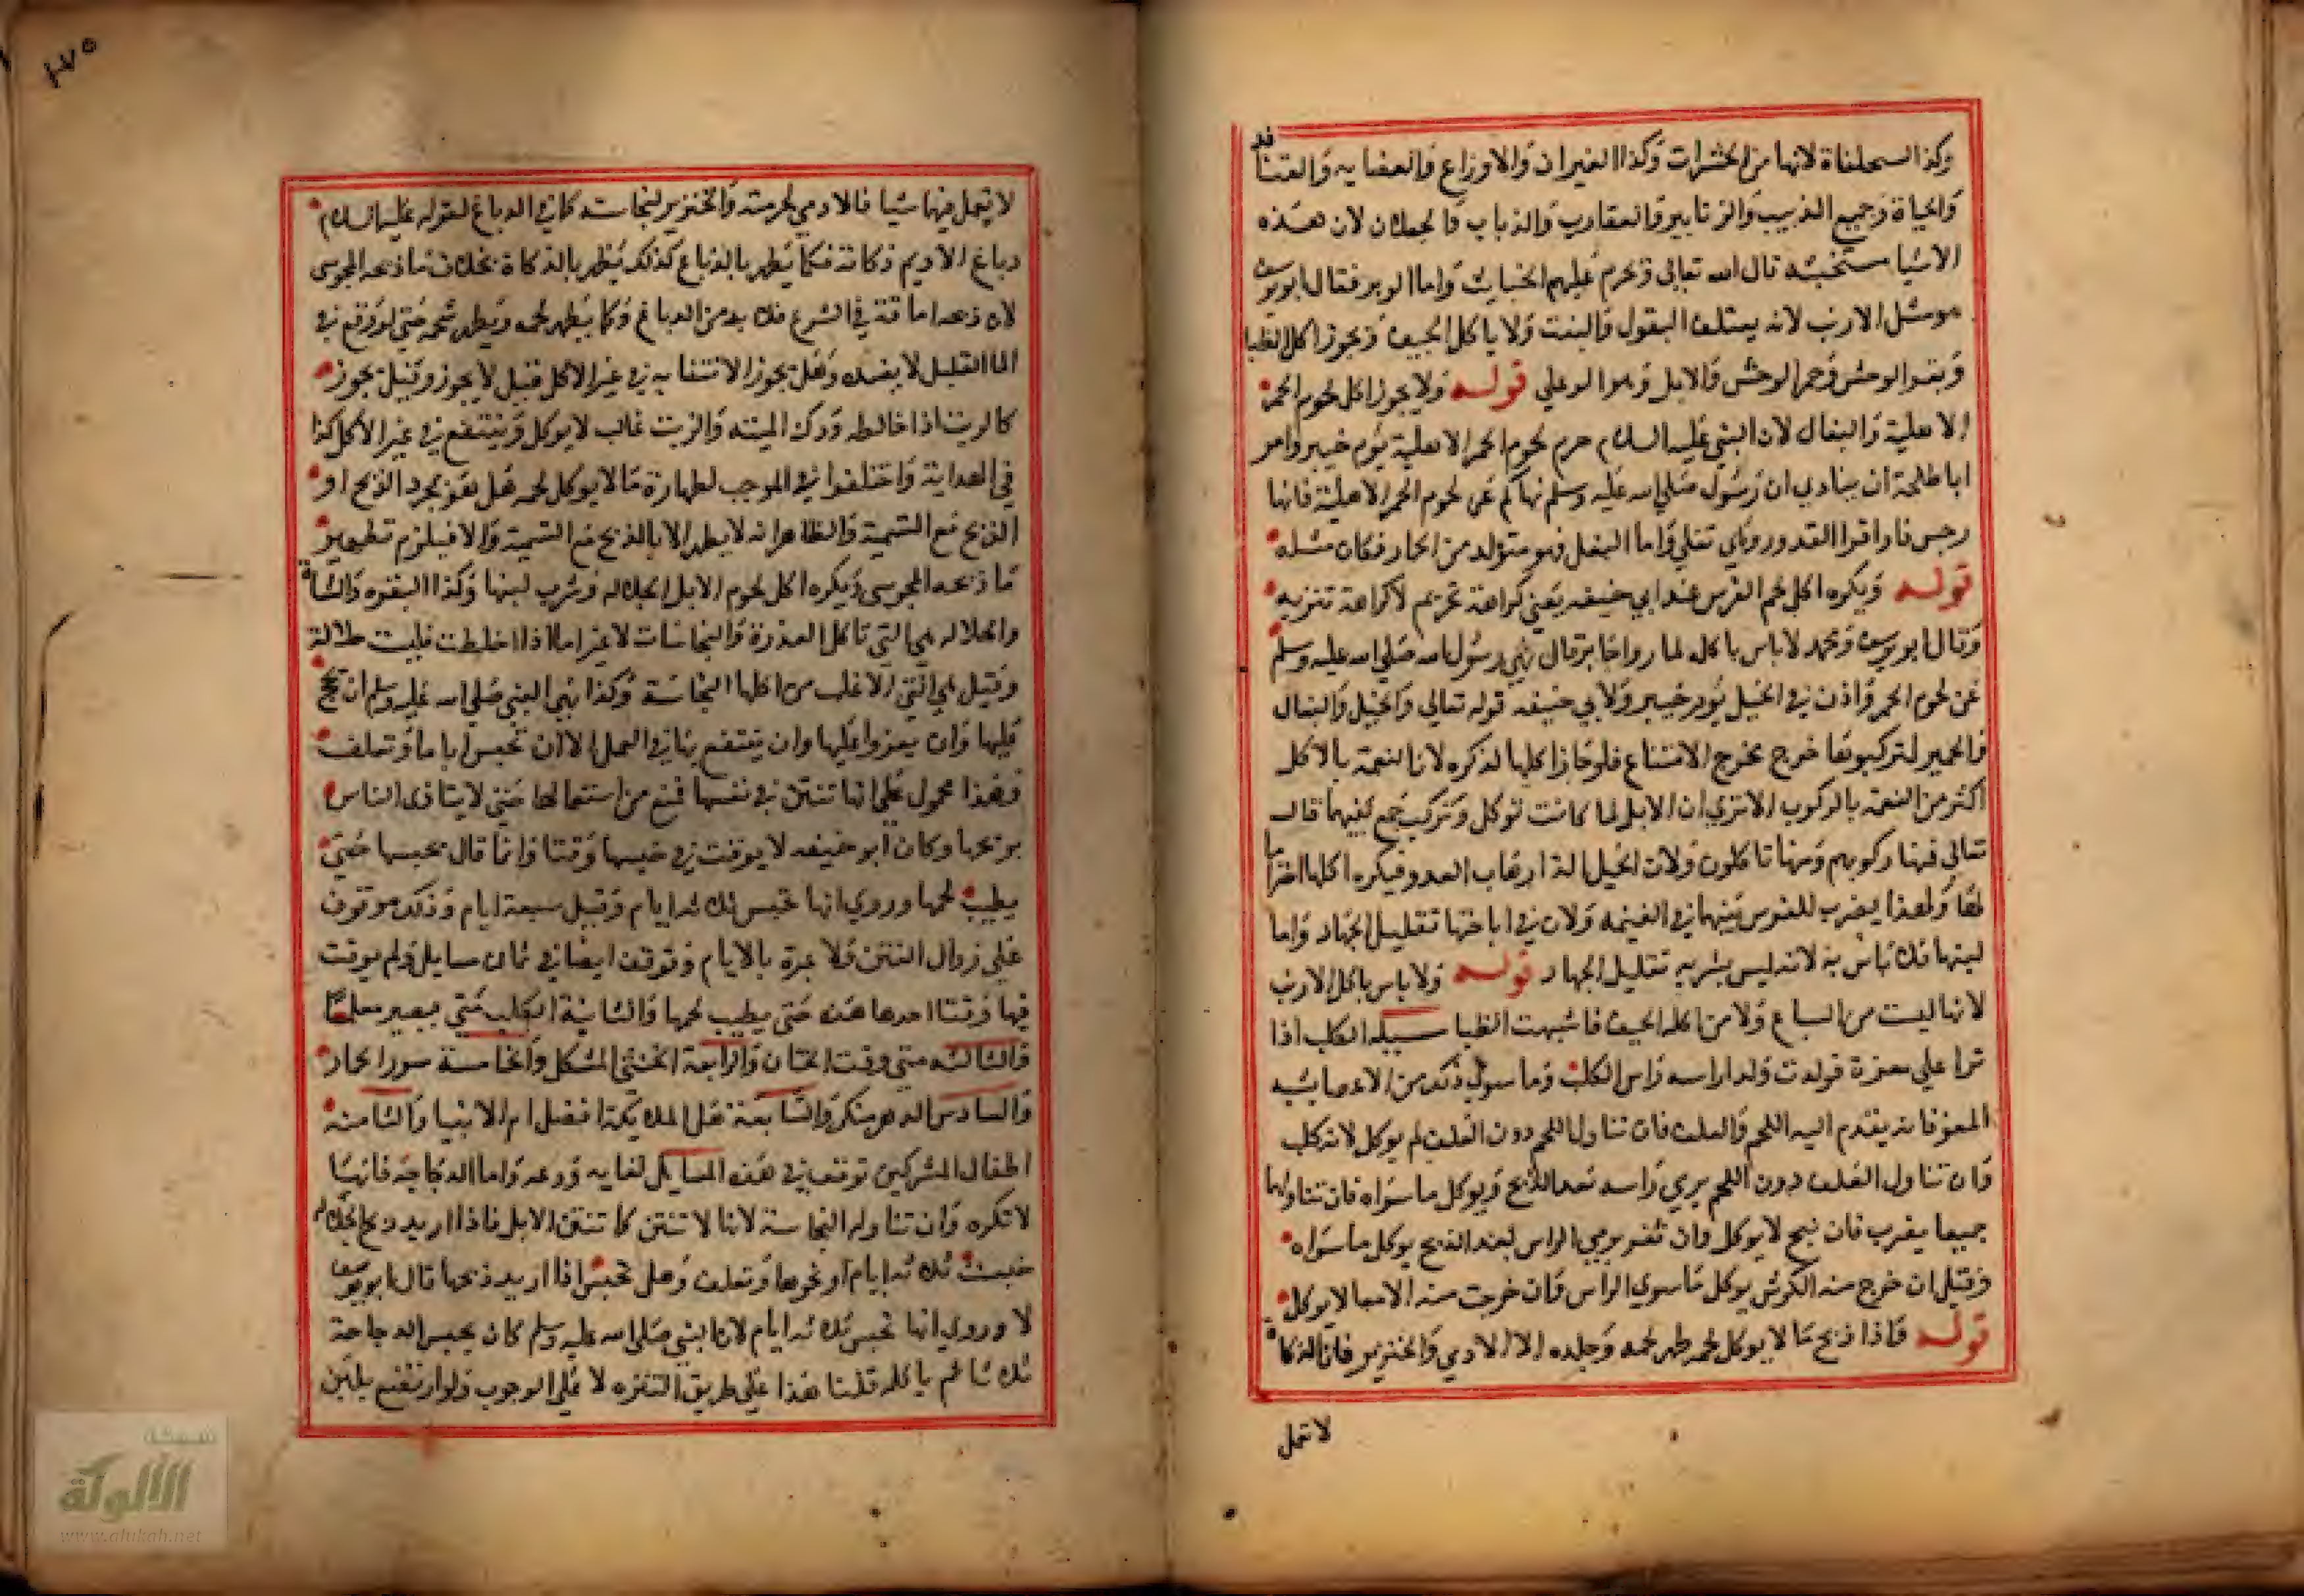 وكذا السحلفاة لانها من الحشرات وكذا الفيران والاوزاغ والعضايه والقنافد
والحياة وجميع الدبيب والزنابير والعقارب والذباب والجعلان لان هذه
الاشيا مستخبثه قال الله تعالى ويحرم عليهم الخبايث واما الوبر فقال ابو يوسف
هو مثل الارنب لانه يعتلف البقول والنبت ولا ياكل الجيف ويجوز اكل الظبا
وبقر الوحش وحمر الوحش والابل وهو الوعلي قوله ولا يجوز اكل لحوم الحمر
الاهلية والبغال لان النبي عليه السلام حرم لحوم الحمر الاهلية يوم خيبر وامر
ابا طلحة ان ينادي ان رسول صلى الله عليه وسلم نهاكم عن لحوم الحمر الاهلية فانها
رجس فاراقوا القدور وهي تغلي واما البغل فهو متولد من الحمار فكان مثله
قوله ويكره اكل لحم الفرس عند ابي حنيفه يعني كراهة تحريم لا كراهة تنزيه
وقال ابو يوسف ومحمد لا باس باكله لما روا جابر قال نهى رسول الله صلى الله عليه وسلم
عن لحوم الحمر واذن في الخيل يوم خيبر ولابي حنيفه قوله تعالى والخيل والبغال
والحمير لتركبوها خرج مخرج الامتناع فلو جاز اكلها لذكره لان النعمة بالاكل
اكثر من النعمة بالركوب الا ترى ان الابل لما كانت توكل وتركب جمع بينهما قال
تعالى فمنها ركوبهم ومنها تاكلون ولان الخيل الة ارهاب العدو فيكره اكلها احتراما
لها ولهذا يضرب للفرس بسهما في الغنيمه ولان في اباحتها تقليل الجهاد واما
لبنها فلا باس به لانه ليس بشربه تقليل الجهاد قوله ولا باس باكل الارنب
لانها ليست من السباع ولا من اكلة الجيف فاشبهت الظبا مسيله الكلب اذا
نزا على معزة فولدت ولدا راسه راس الكلب وما سوى ذلك من الاعضا يشبه
المعز فانه يقدم اليه اللحم والعلف فان تناول اللحم دون العلف لم يوكل لانه كلب
وان تناول العلف دون اللحم يرمي راسه بعد الذبح ويوكل ما سواه فان تناولهما
جميعا يضرب فان نبح لا يوكل وان ثغر يرمي الراس بعد الذبح يوكل ما سواه
وقيل ان خرج منه الكرش يوكل ما سوى الراس وان خرجت منه الامعا لا يوكل
قوله واذا ذبح ما لا يوكل لحمه طهر لحمه وجلده الا الادمي والخنزير فان الذكاة
لا تعمل
١٧٥
لا تعمل فيهما شيا فالادمي لحرمته والخنزير لنجاسته كما في الدباغ لقوله عليه السلام
دباغ الاديم ذكاته فكما يطهر بالدباغ كذلك يطهر بالذكاة بخلاف ما ذبحه المجوسي
لان ذبحه اماتة في الشرع فلا بد من الدباغ وكما يطهر لحمه ويطهر شحمه حتى لو وقع في
الما القليل لا يفسده وهل يجوز الانتفاع به في غير الاكل قيل لا يجوز وقيل يجوز
كالزيت اذا خالطه ودك الميته والزيت غالب لا يوكل وينتفع في غير الاكل كذا
في الهداية واختلفوا في الموجب لطهارة ما لا يوكل لحمه هل هو بمجرد الذبح او
الذبح مع التسمية والظاهر انه لا يطهر الا بالذبح مع التسمية والا فيلزم تطهير
ما ذبحه المجوسي ويكره اكل لحوم الابل الجلاله وشرب لبنها وكذا البقره والشاة
والجلاله هي التي تاكل العذرة والنجاسات لا غير اما اذا خلطت فليست جلالة
وقيل هي التي الاغلب من اكلها النجاسة وكذا نهى النبي صلى الله عليه وسلم ان يحج
عليها وان يعزوا عليها وان ينتفع بها في العمل الا ان تحبس اياما وتعلف
فهذا محمول على انها تنتن في نفسها فمنع من استعمالها حتى لا يتاذى الناس
بريحها وكان ابو حنيفه لا يوقت في حبسها وقتا وانما قال يحبسها حتى
يطيب لحمها وروي انها تحبس ثلاثه ايام وقيل سبعة ايام وذلك موقوف
على زوال النتن ولا عبرة بالايام وتوقف ايضا في ثمان مسايل ولم يوقت
فيها وقتا احدها هذه متى يطيب لحمها والثانية الكلب متى يصير معلما
والثالثه متى وقت الختان والرابعة الخنثى المشكل والخامسة سور الحمار
والسادس الدهر منكر والسابعة هل الملايكة افضل ام الانبيا والثامنه
اطفال المشركين توقف في هذه المسايل لغايه ورعه واما الدجاجة فانها
لا تكره وان تناولت النجاسة لانها لا تنتن كما تنتن الابل فاذا اريد ذبح الجلاله
حبست ثلاثه ايام او نحوها وتعلف وهل تحبس اذا اريد ذبحها قال ابو يوسف
لا وروي انها تحبس ثلاثه ايام لان النبي صلى الله عليه وسلم كان يحبس الدجاجة
ثلاثا ثم ياكله قلنا هذا على طريق التنزه لا على الوجوب ولو ارتضع بلبن
شبكة
الألوكة
www.alukah.net